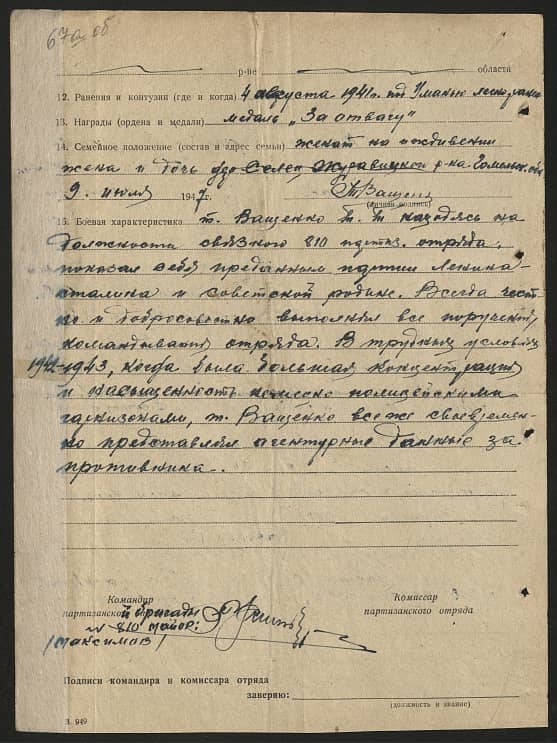 67а об
р-не области
12. Ранения и контузии (где и когда) 4 августа 1941г. под Уманью
13. Награды (ордена и медали) медаль „За отвагу"
14. Семейное положение (состав и адрес семьи) женат на иждивении
жена и дочь Журавицкого р-на Гомельск. обл
9. июля 1947г.
(личная подпись)
15. Боевая характеристика т. Ващенко находясь на
должности связного 810 партиз. отряда,
показал себя преданным партии Ленина-
сталина и советской родине. Всегда чест-
но и добросовестно выполнял все поручения
командывания отряда. В трудных условиях
1942-1943, когда была большая концентрация
и насыщенность немецко полицейскими
гарнизонами, т. Ващенко все же своевремен-
но представлял агентурные данные за
противника.
Командир Комиссар
партизанской бригады партизанского отряда
№ 810 майор:
/Максимов/
Подписи командира и комиссара отряда
заверяю:
(должность и звание)
З. 949